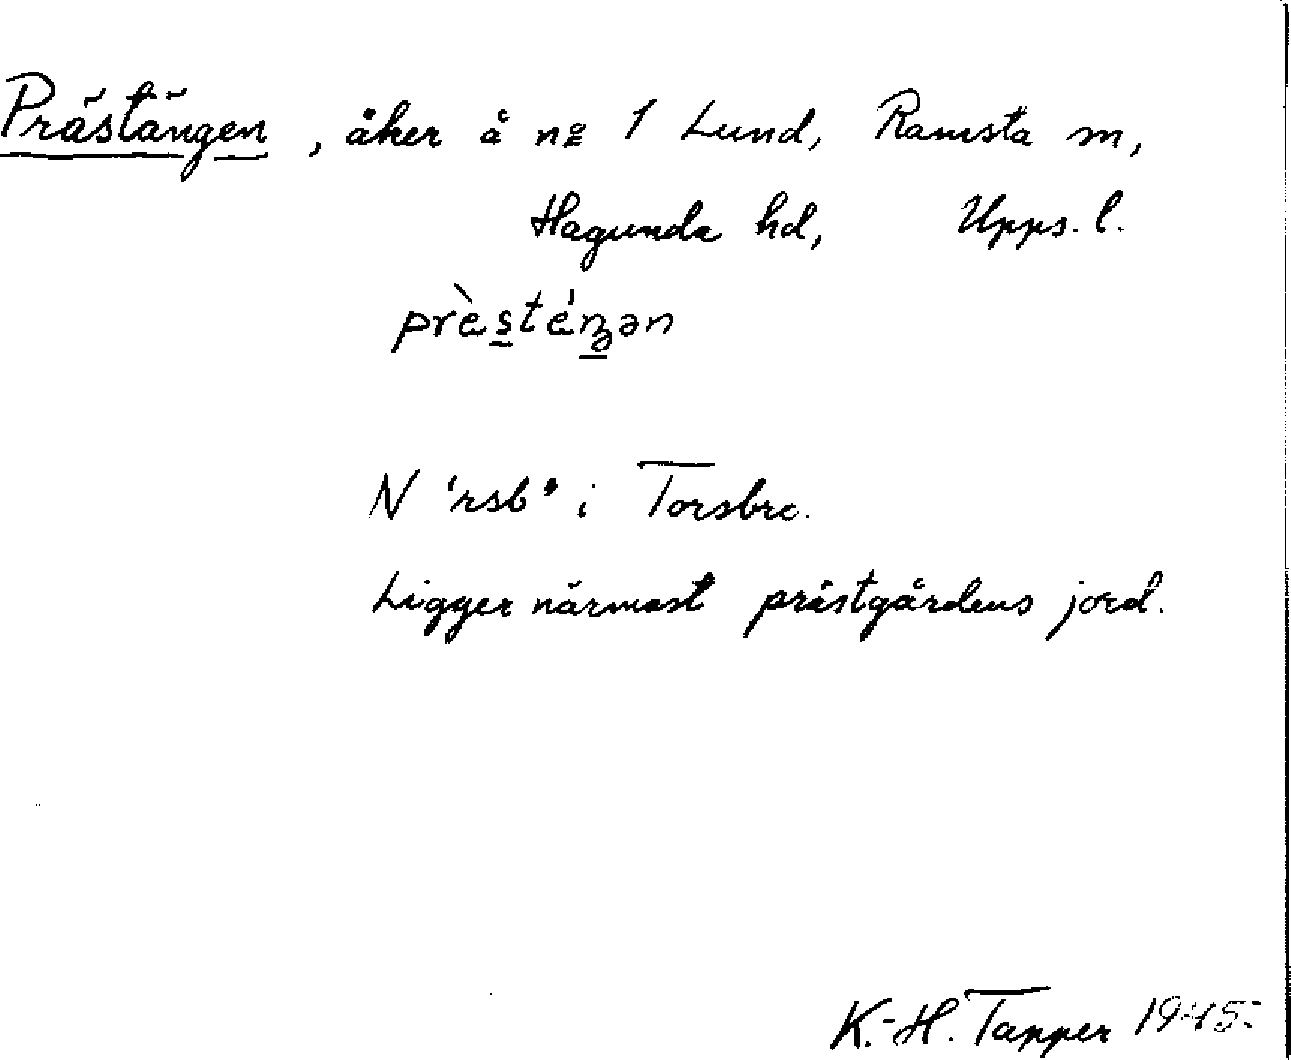 Prästängen, åker å nº 1 Lund, Ramsta sn,
Hagunda hd, Upps. l.
prèsténgən
N 'rsb' i Torsbro.
Ligger närmast prästgårdens jord.
K.-H. Tapper 1945.